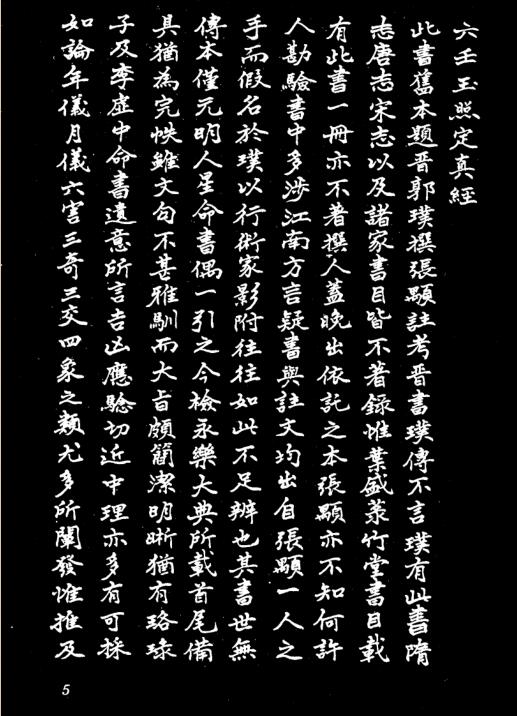 六壬玉照定真經
此書舊本題晉郭璞撰張顒註考晉書璞傳不言璞有此書隋
志唐志宋志以及諸家書目皆不著錄惟葉盛菉竹堂書目載
有此書一冊亦不著撰人蓋晚出依託之本張顒亦不知何許
人勘驗書中多涉江南方言疑書與註文均出自張顒一人之
手而假名於璞以行術家影附往往如此不足辨也其書世無
傳本僅元明人星命書偶一引之今檢永樂大典所載首尾備
具猶為完帙雖文句不甚雅馴而大旨頗簡潔明晰猶有珞琭
子及李虛中命書遺意所言吉凶應驗切近中理亦多有可採
如論年儀月儀六害三奇三交四象之類尤多所闡發惟推及
5